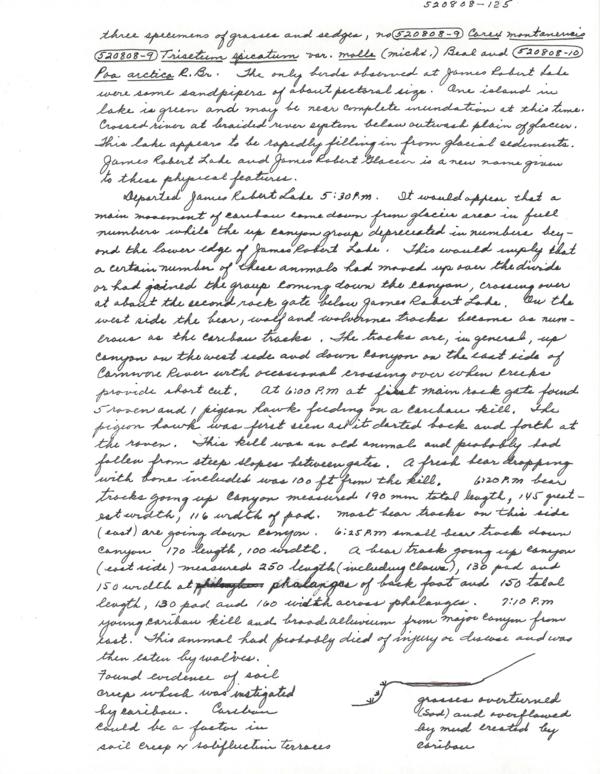 520808-125
three specimens of grasses and sedges, no 520808-9 Carex montanensis
520808-9 Trisetum spicatum var. molle (Michx.) Beal and 520808-10
Poa arctica R.Br. The only birds observed at James Robert Lake
were some sandpipers of about pectoral size. One island in
lake is green and may be near complete inundation at this time.
Crossed river at braided river system below outwash plain of glacier.
This lake appears to be rapidly filling in from glacial sediments.
James Robert Lake and James Robert Glacier is a new name given
to these physical features.
Departed James Robert Lake 5:30 P.m. It would appear that a
main movement of caribou came down from glacier area in full
numbers while the up canyon group depreciated in numbers bey-
ond the lower edge of James Robert Lake. This would imply that
a certain number of these animals had moved up over the divide
or had gained the group coming down the canyon, crossing over
at about the second rock gate below James Robert Lake. On the
west side the bear, wolf and wolverine tracks become as num-
erous as the caribou tracks. The tracks are, in general, up
canyon on the west side and down canyon on the east side of
Carnivore River with occasional crossing over when creeks
provide short cut. At 6:00 P.M at first main rock gate found
5 raven and 1 pigeon hawk feeding on a caribou kill. The
pigeon hawk was first seen as it darted back and forth at
the raven. This kill was an old animal and probably had
fallen from steep slopes between gates. A fresh bear dropping
with bone included was 100 ft from the kill. 6:20 P.M bear
tracks going up canyon measured 190 mm total length, 145 great-
est width, 116 width of pad. Most bear tracks on this side
(east) are going down canyon. 6:25 P.m small bear track down
canyon 170 length, 100 width. A bear track going up canyon
(east side) measured 250 length (including claws), 130 pad and
150 width at phalanges of back foot and 150 total
length, 130 pad and 160 width across phalanges. 7:10 P.m
young caribou kill and broad alluvium from major canyon from
east. This animal had probably died of injury or disease and was
then eaten by wolves.
Found evidence of soil
creep which was instigated
by caribou. Caribou
could be a factor in
soil creep & solifluction terraces
grasses overturned
(sod) and overflowed
by mud created by
caribou